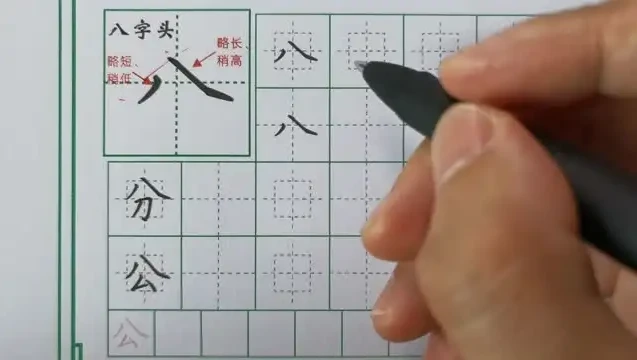 八字头
略长、
稍高
略短、
稍低
八
八
八
分
公
公